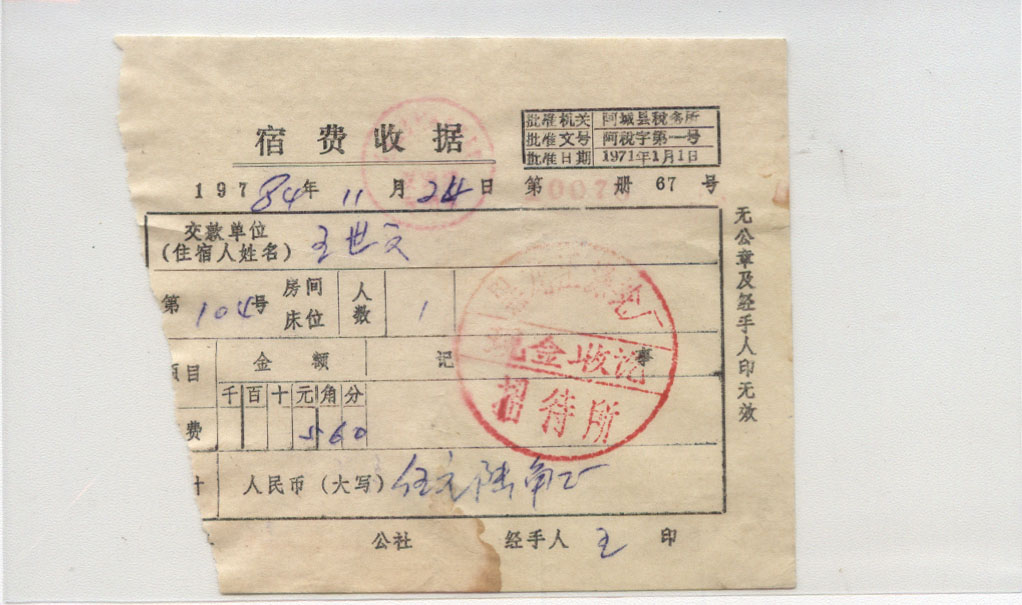 宿费收据
批准机关 阿城县税务所
批准文号 阿税字第一号
批准日期 1971年1月1日
197 84年 11月 24日 第 007 册 67 号
交款单位
(住宿人姓名) 王世文
第104号 房间床位 人数 1
项目 金额 记事
千百十元角分
费 560
人民币(大写) 伍元陆角正
公社 经手人 王 印
无公章及经手人印无效
现金收讫
招待所